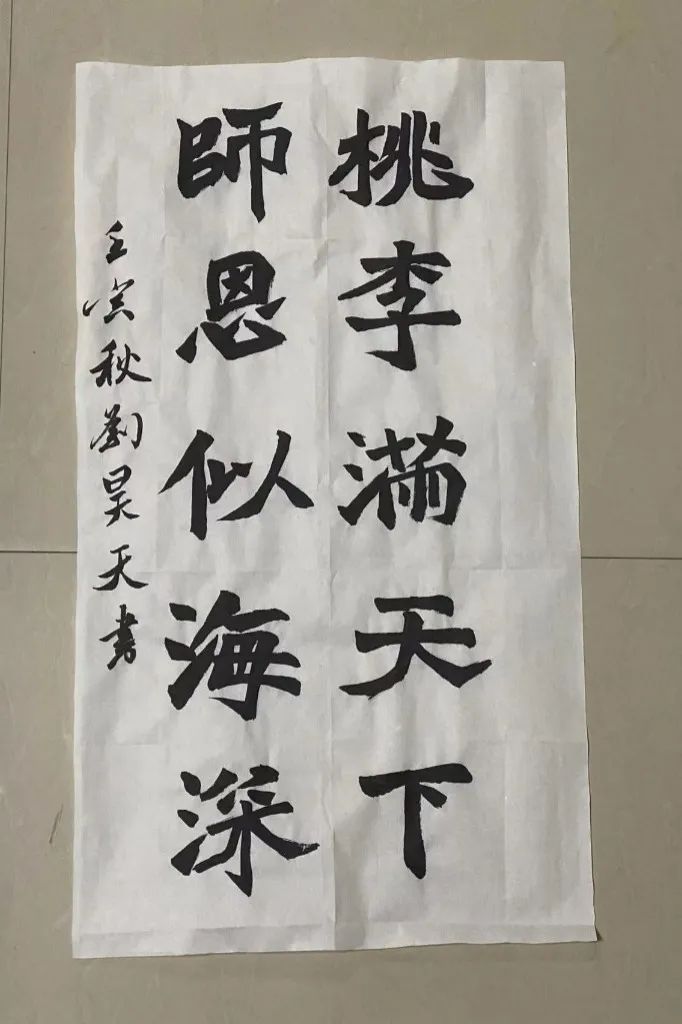 桃李满天下
師恩似海深
壬寅秋劉昊天書